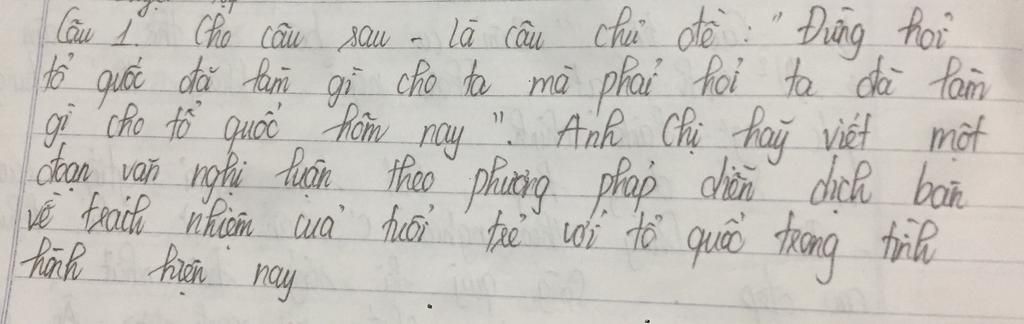 Câu 1. Cho câu sau - là câu chủ đề: "Đừng hỏi
tổ quốc đã làm gì cho ta mà phải hỏi ta đã làm
gì cho tổ quốc hôm nay". Anh Chị hãy viết một
đoạn văn nghị luận theo phương pháp diễn dịch bàn
về trách nhiệm của tuổi trẻ với tổ quốc trong tình
hình hiện nay